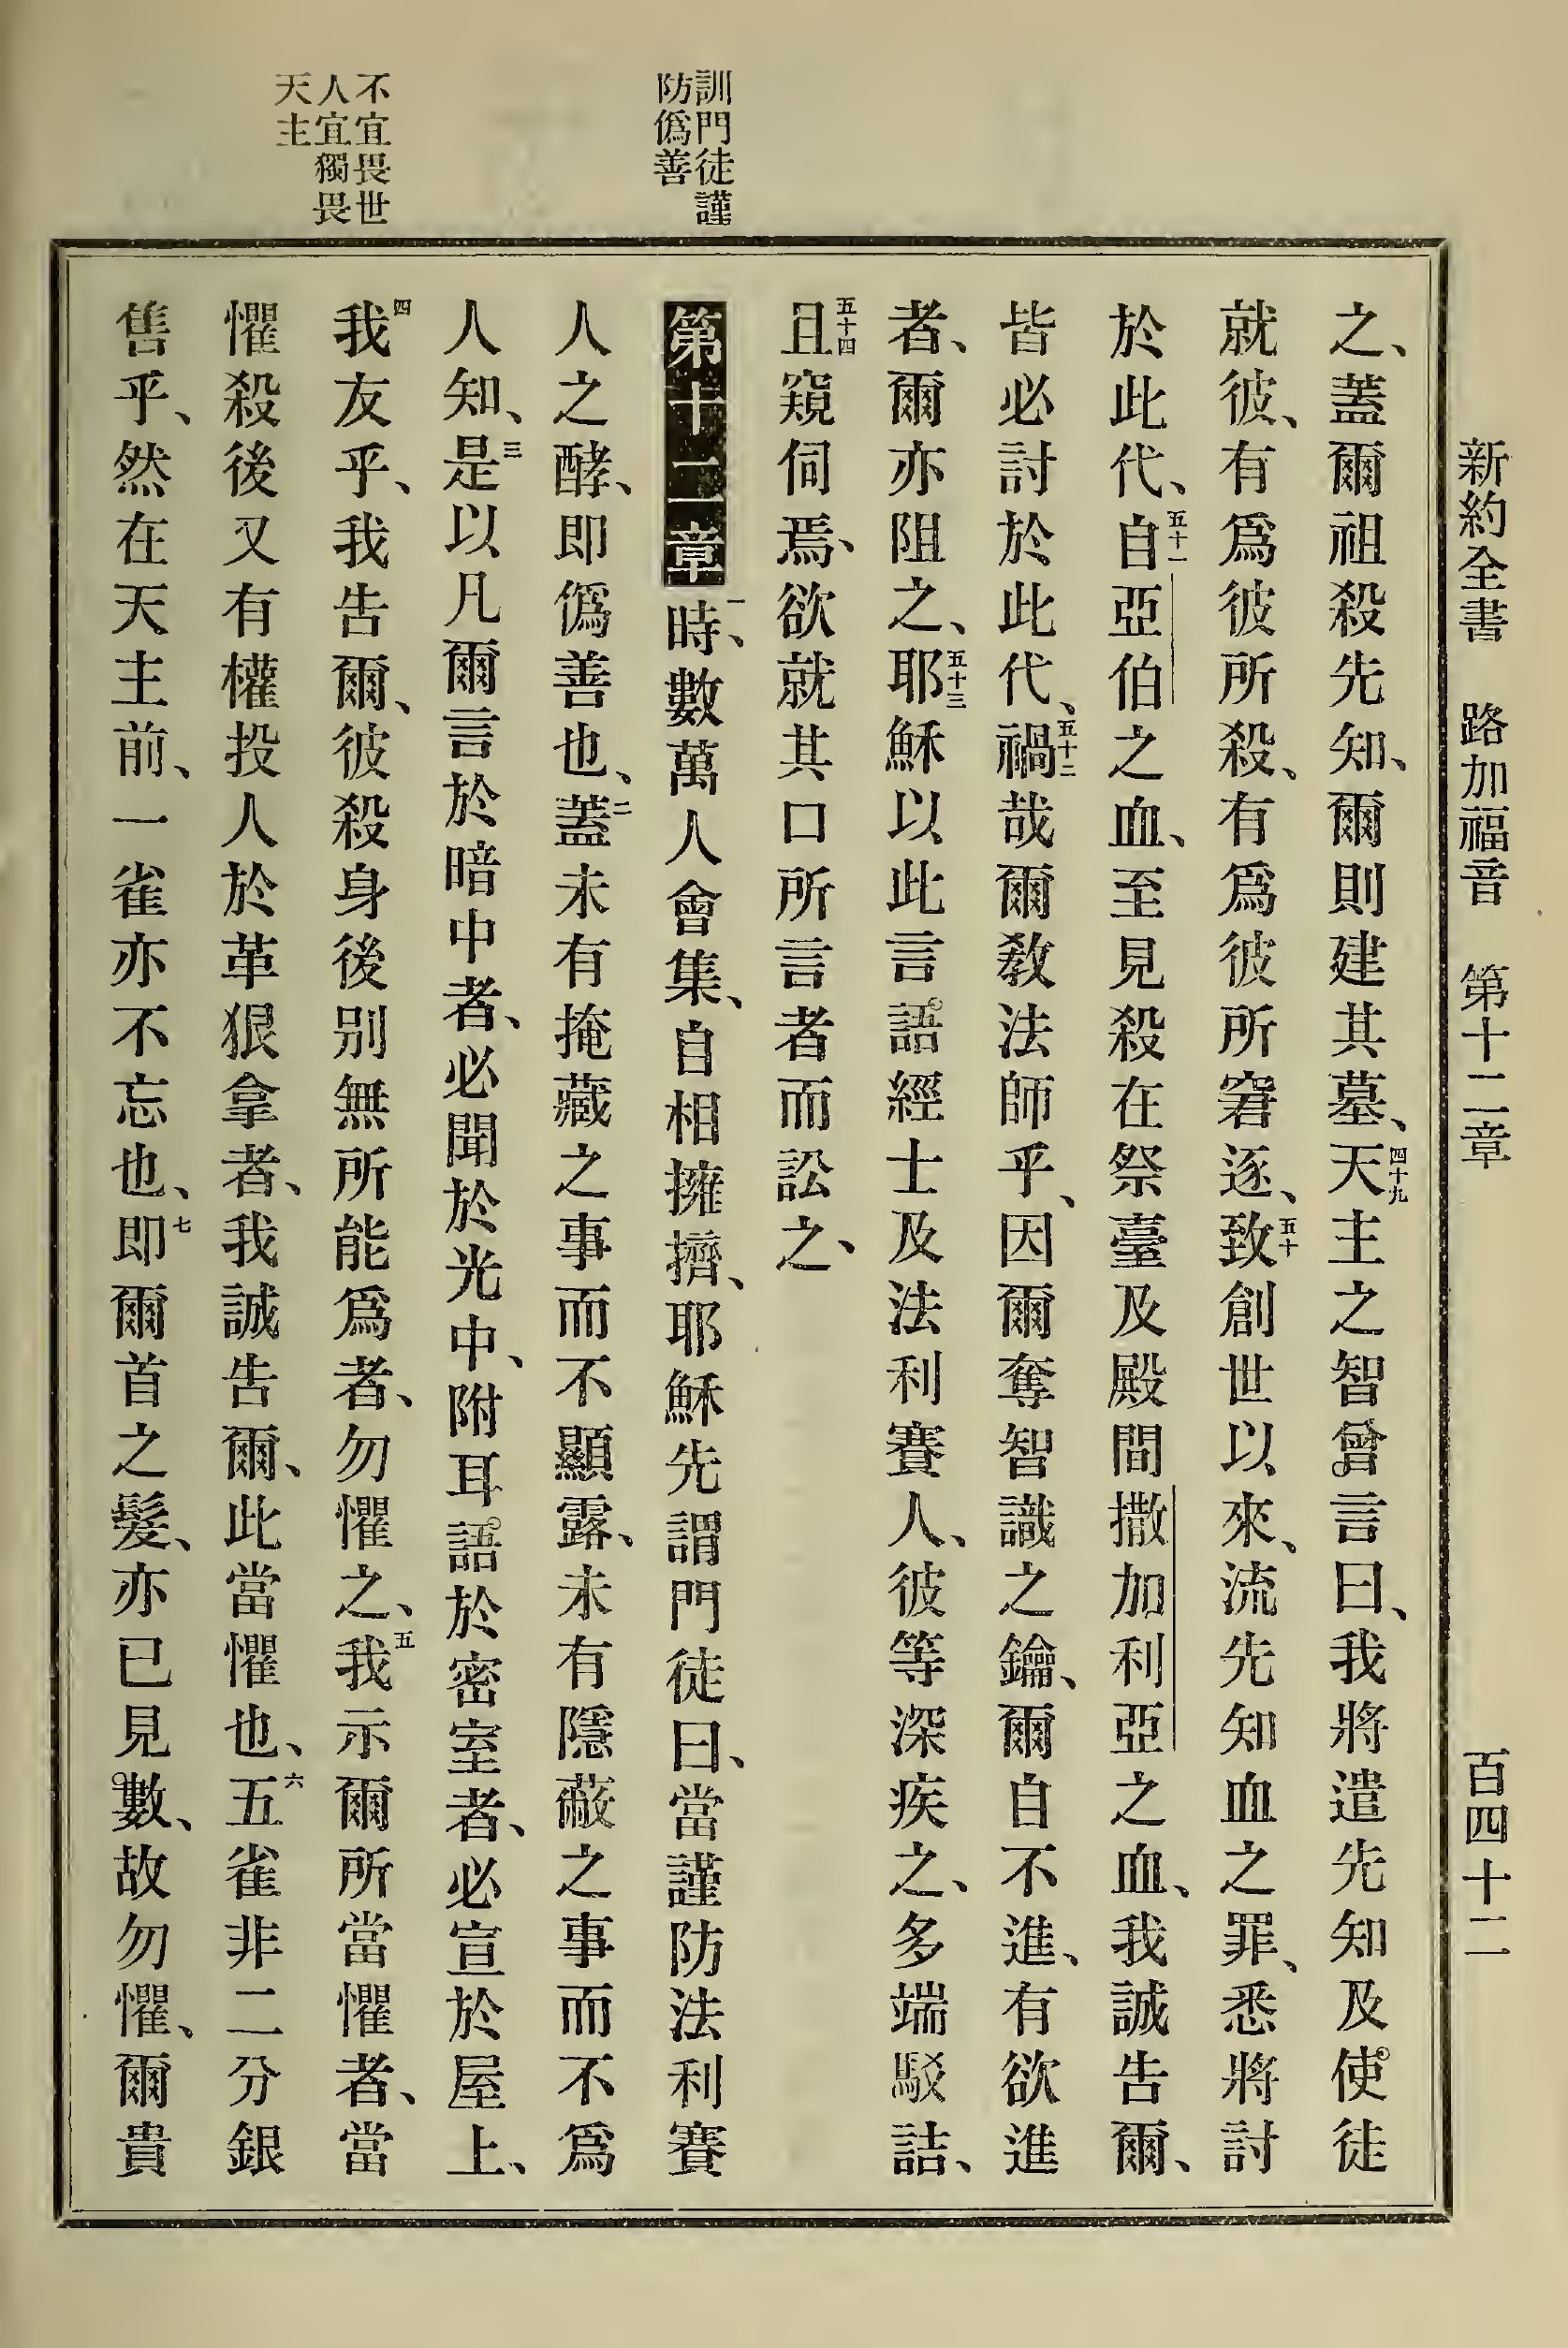 新約全書 路加福音 第十二章 百四十二
訓門徒謹
防僞善
不宜畏世
人宜獨畏
天主
之、蓋爾祖殺先知、爾則建其墓、四十九天主之智曾言曰、我將遣先知及使徒
就彼、有爲彼所殺、有爲彼所窘逐、五十致創世以來、流先知血之罪、悉將討
於此代、五十一自亞伯之血、至見殺在祭臺及殿間撒加利亞之血、我誠告爾、
皆必討於此代、五十二禍哉爾教法師乎、因爾奪智識之鑰、爾自不進、有欲進
者、爾亦阻之、五十三耶穌以此言語經士及法利賽人、彼等深疾之、多端駁詰、
五十四且窺伺焉、欲就其口所言者而訟之、
第十二章 一時、數萬人會集、自相擁擠、耶穌先謂門徒曰、當謹防法利賽
人之酵、即僞善也、二蓋未有掩藏之事而不顯露、未有隱蔽之事而不爲
人知、三是以凡爾言於暗中者、必聞於光中、附耳語於密室者、必宣於屋上、
四我友乎、我告爾、彼殺身後別無所能爲者、勿懼之、五我示爾所當懼者、當
懼殺後又有權投人於革狠拿者、我誠告爾、此當懼也、六五雀非二分銀
售乎、然在天主前、一雀亦不忘也、七即爾首之髮、亦已見數、故勿懼、爾貴